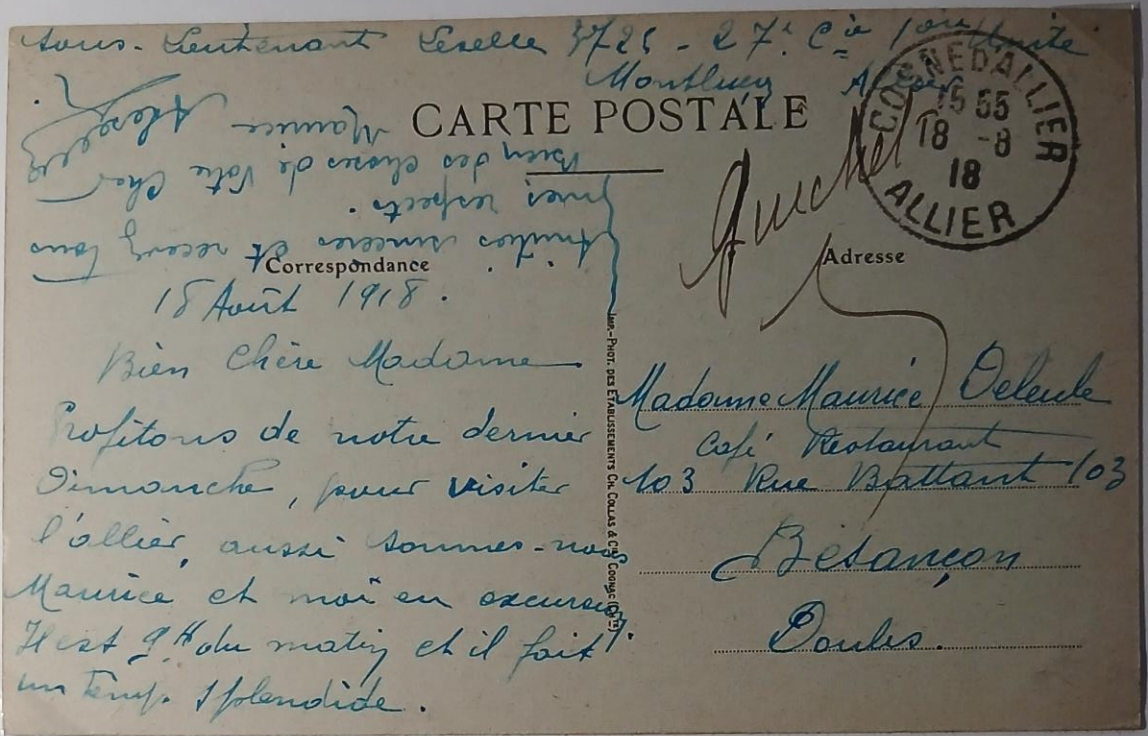 Sous-Lieutenant Lexelle 372S - 27e Cie
Montluçon Allier
CARTE POSTALE
COSNE D'ALLIER
15 55
18 -8
18
ALLIER
Correspondance
Adresse
18 Août 1918.
Bien Chère Madame
Profitons de notre dernier
Dimanche, pour visiter
l'allier, aussi sommes-nous
Maurice et moi en excursion.
Il est 9H du matin et il fait
un temps splendide.
Amitiés sincères et recevez tous
mes respects.
Bien des choses de Votre Cher
Maurice -
IMP.-PHOT. DES ETABLISSEMENTS CH. COLLAS & Cie, COGNAC (Chte)
Madame Maurice Deleule
Café Restaurant
103 Rue Battant 103
Besançon
Doubs.